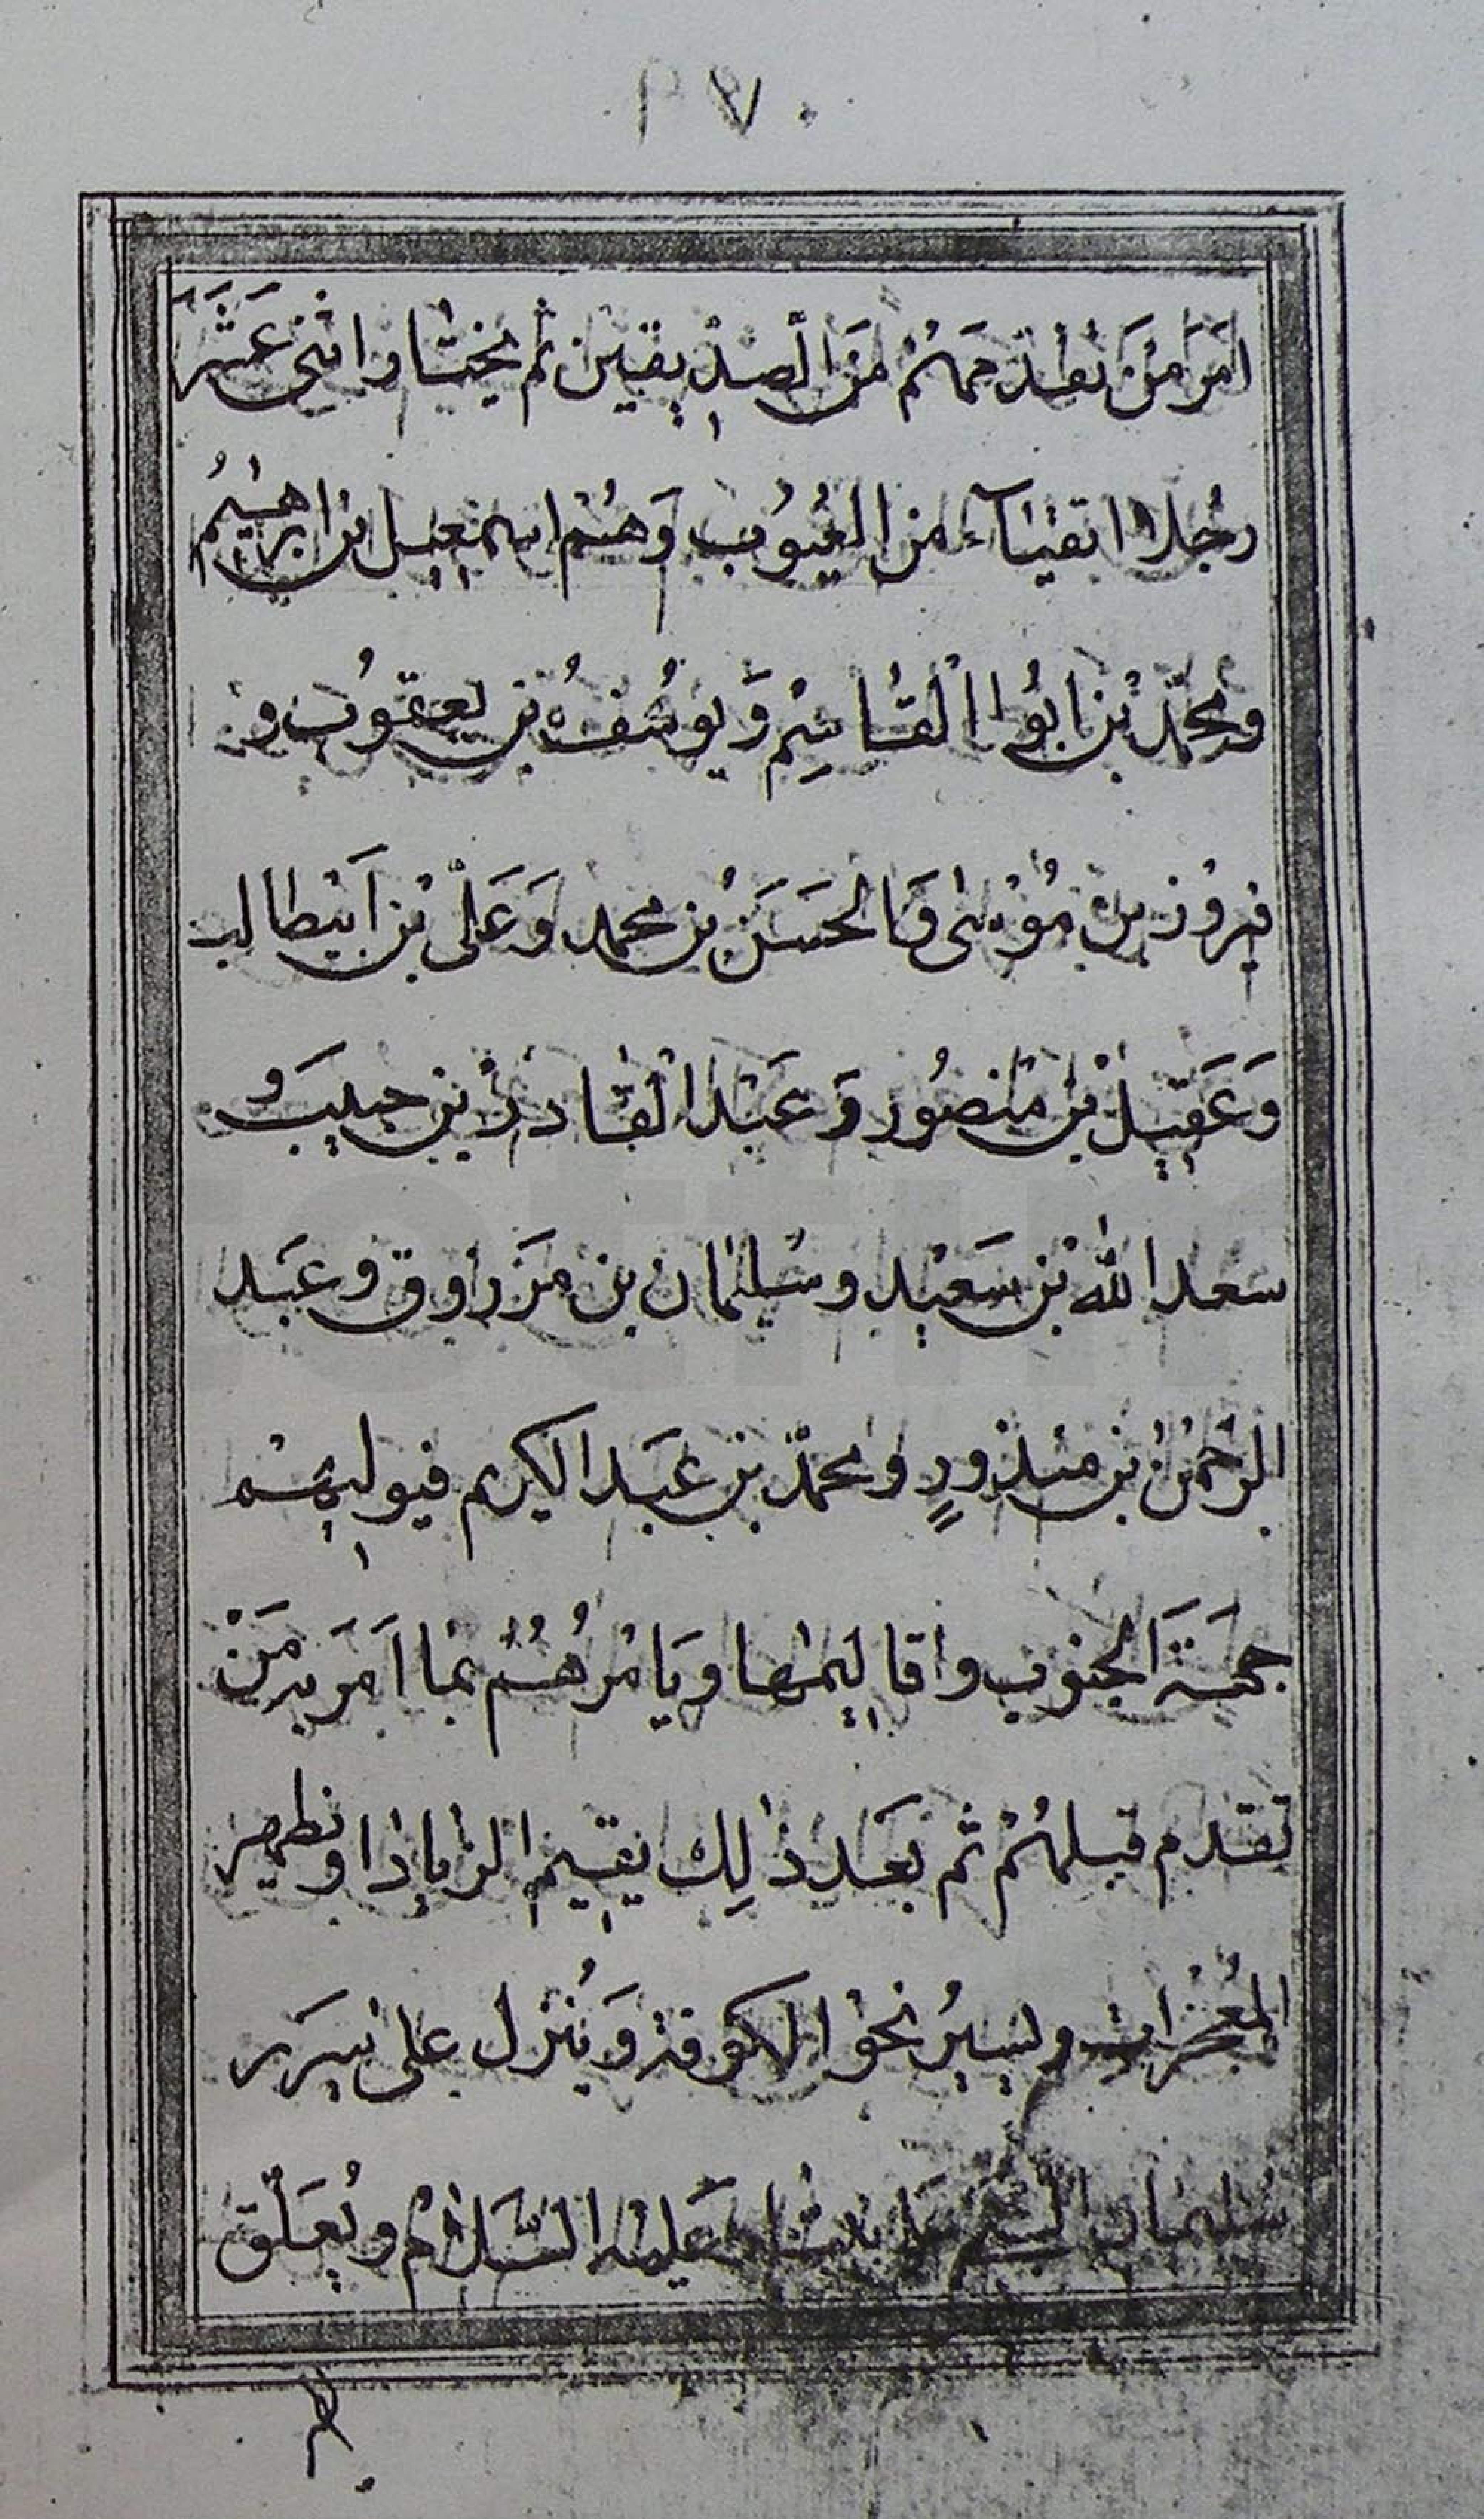 ١٧٠
امَرَ مَنْ تقدّمَهُم مَنَ الصِدِّيقين ثم يختار اثنى عَشَرَ
رجُلا اتقيَآء من العُيُوب وَهُم اسمعيل بن ابرهيمُ
ومحمّد بْن ابُوا القاسِم وَيوسُفُ بن يعقوُب و
فيروُز بن مُوسٰى وَالحَسَنُ بن محمد وَعَلى بْن ابيطالب
وَعَقيل بْن منصُور وَعبْد القادر بن حبيب وَ
سعد الله بْن سَعيْد وسُليمان بن مَرزوق وعبَد
الرحمٰن بن منذورٍ ومحمّد بن عبَد الكريم فيوليهم
جهَةَ الجنوب واقاليمها ويَامُرهُم بما امَرَ به مَنْ
تقدم قبلهُم ثم بعَد ذٰلِك يقيم الرايات او تظهر
المُعجزات ويسيرُ نحو الكوفة وَيُنزل على سرير
سليمان عليه السَلامُ ويُعَلّق